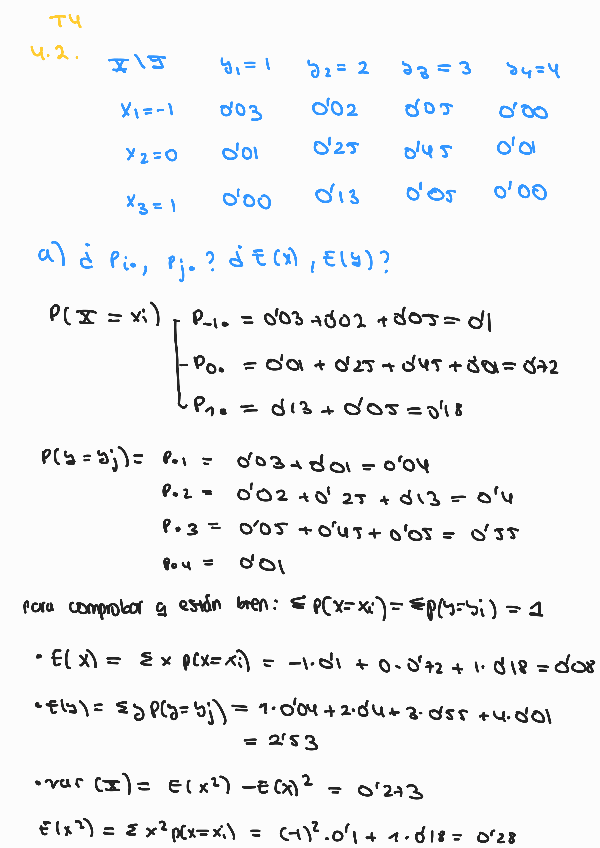 T4
4.2.
X\Y y₁=1 y₂=2 y₃=3 y₄=4
x₁=-1 0'03 0'02 0'05 0'00
x₂=0 0'01 0'25 0'45 0'01
x₃=1 0'00 0'13 0'05 0'00
a) ¿ Pi., Pj. ? ¿ E(x), E(y)?
P(X = xi) P-1. = 0'03 + 0'02 + 0'05 = 0'1
P0. = 0'01 + 0'25 + 0'45 + 0'01 = 0'72
P1. = 0'13 + 0'05 = 0'18
P(y = yj) = P.1 = 0'03 + 0'01 = 0'04
P.2 = 0'02 + 0'25 + 0'13 = 0'4
P.3 = 0'05 + 0'45 + 0'05 = 0'55
P.4 = 0'01
para comprobar q están bien: Σ P(x=xi) = Σ p(y=yi) = 1
• E(X) = Σ x p(x=xi) = -1·0'1 + 0·0'72 + 1·0'18 = 0'08
• E(y) = Σ y P(y=yj) = 1·0'04 + 2·0'4 + 3·0'55 + 4·0'01
= 2'53
• var (X) = E(x²) - E(x)² = 0'273
E(x²) = Σ x² p(x=xi) = (-1)²·0'1 + 1·0'18 = 0'28